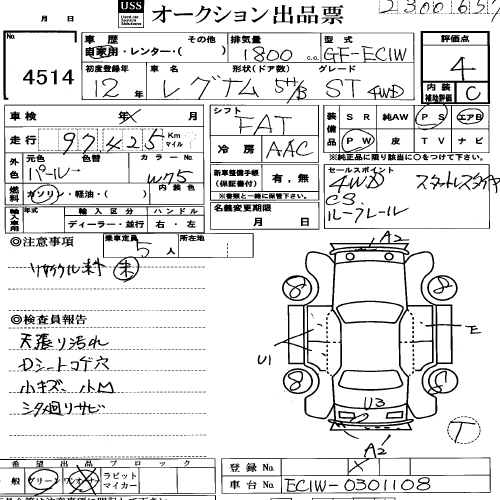 月 日
USS オークション出品票
2300657
No. 4514
車歴 自家用・レンター・( ) その他
排気量 1800 c.c.
型式 GF-EC1W
評価点 4
初度登録年 12 年
車名 レグナム
形状(ドア数) 5H/B
グレード ST 4WD
内装補助評価 C
車検 年 月
シフト FAT
装備品 SR 純AW PS エアB
PW 皮 TV ナビ
※純正品に限り該当に○をつけて下さい
走行 97425 Km マイル
冷房 AAC
外色 元色 パール 色替 カラーNo. W75
内装色
新車整備手帳(保証書付) 有・無
※書類と一緒に保管して下さい
セールスポイント
4WD スタットレスタイヤ
CS.
ルーフレール
燃料 ガソリン・軽油・( )
名義変更期限 月 日
輸入車用 年式 輸入区分 ディーラー・並行 ハンドル 右・左
◎注意事項
乗車定員 5 人
所在地
リサイクル料 未
◎検査員報告
天張り汚れ
Dシートコゲ穴
小キズ、小凹
シタ廻りサビ
A2
8 8
E
U1
8
U3
A2
T
希望出品ブロック
一般 グリーン ワオナー ラビット マイカー
登録No.
車台No. EC1W-0301108